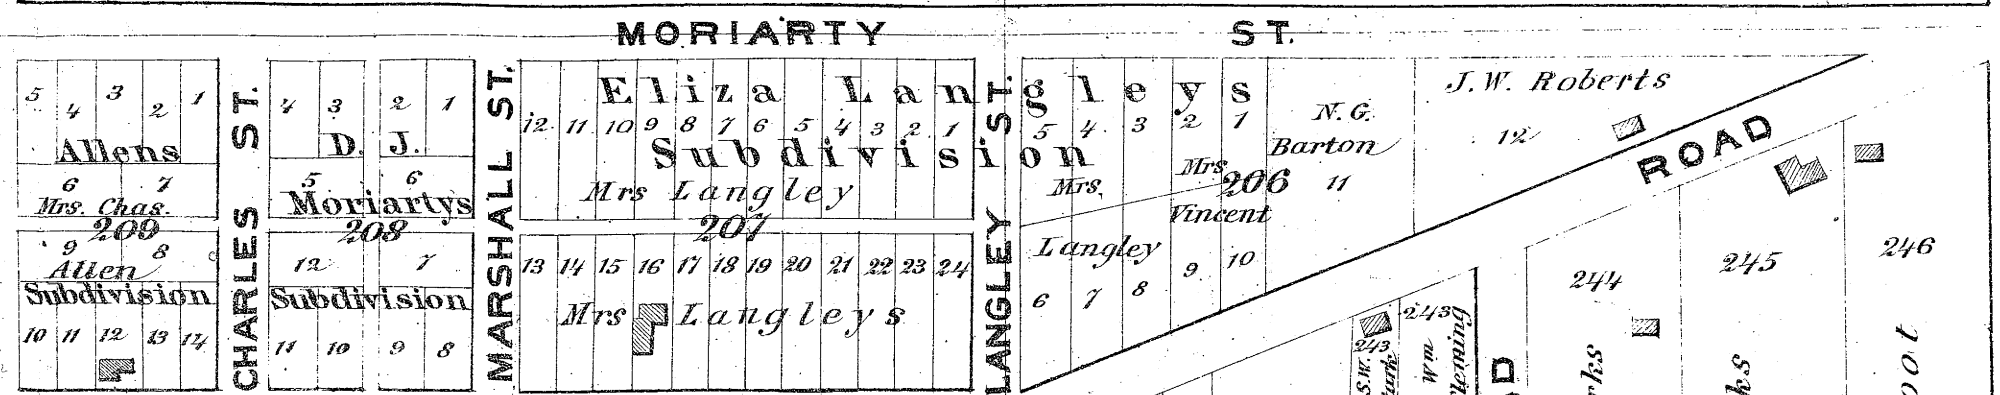 MORIARTY ST.
5 4 3 2 1
Allens
6 7
Mrs. Chas.
209
9 8
Allen
Subdivision
10 11 12 13 14
CHARLES ST.
4 3 2 1
D. J.
5 6
Moriartys
208
12 7
Subdivision
11 10 9 8
MARSHALL ST.
Eliza Langleys
12 11 10 9 8 7 6 5 4 3 2 1
Subdivision
Mrs Langley
207
13 14 15 16 17 18 19 20 21 22 23 24
Mrs Langleys
LANGLEY ST.
5 4 3 2 1
Mrs.
Langley
6 7 8 9 10
Mrs
Vincent
206
N. G.
Barton
11
J. W. Roberts
12
ROAD
243
S.W.
243
Wm
Fleming
244
245
246